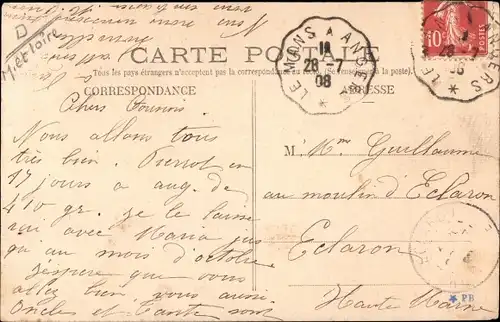 D
Met loire
CARTE POSTALE
Tous les pays étrangers n'acceptent pas la correspondance au recto. (Se renseigner à la poste).
CORRESPONDANCE
ADRESSE
LE MANS A ANGERS
1e
28-7
08
10
Chers Cousins
Nous allons tous
très bien. Pierrot en
17 jours a aug. de
410 gr. je le laisse
ici avec Maria
au mois d'octobre
J'espère que vous
allez bien, vous aussi.
Oncles et Tante sont
M. Mme Guillaume
au moulin d'Eclaron
Eclaron
Haute Marne
* PB